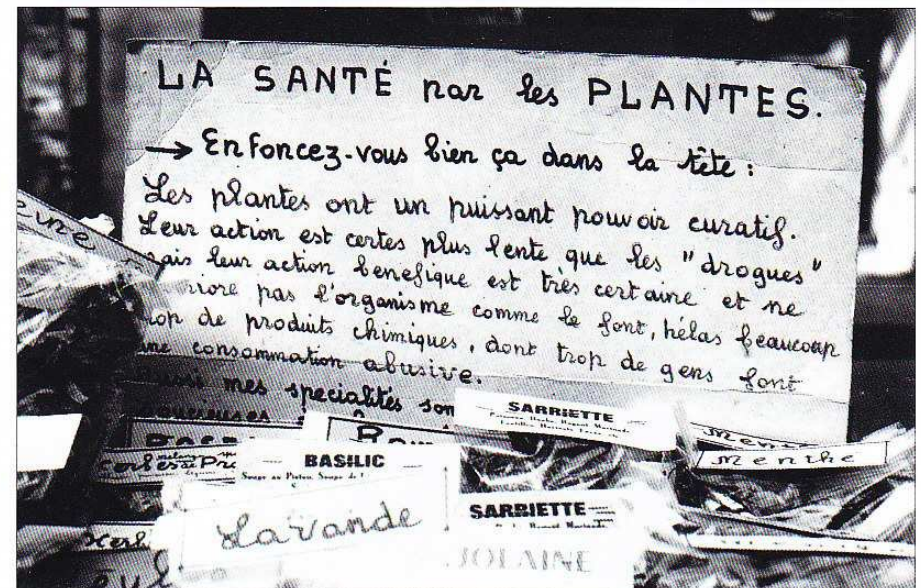 LA SANTÉ par les PLANTES.
→ Enfoncez-vous bien ça dans la tête :
Les plantes ont un puissant pouvoir curatif.
Leur action est certes plus lente que les "drogues"
mais leur action benefique est très certaine et ne
pas l'organisme comme le font, hélas beaucoup
trop de produits chimiques, dont trop de gens font
une consommation abusive.
mes specialités
SARRIETTE
Menthe
BASILIC
SARRIETTE
Lavande